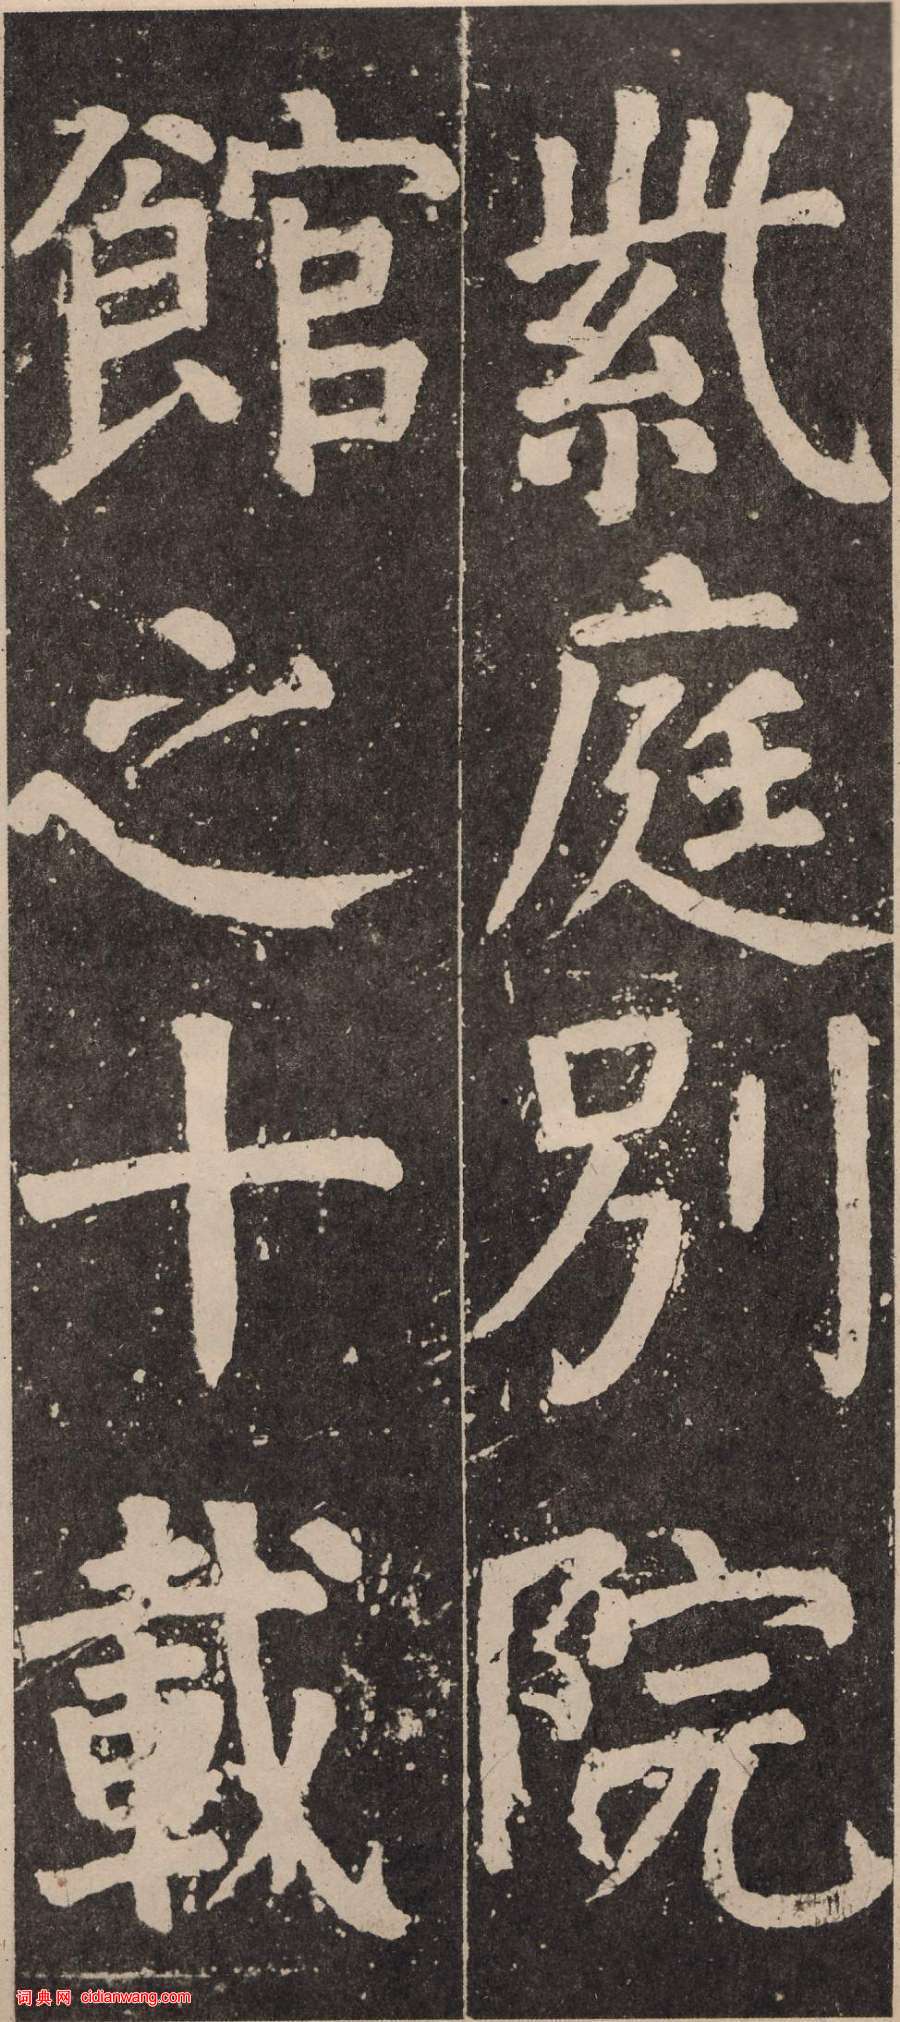 紫庭別院
館之十載
词典网 cidianwang.com